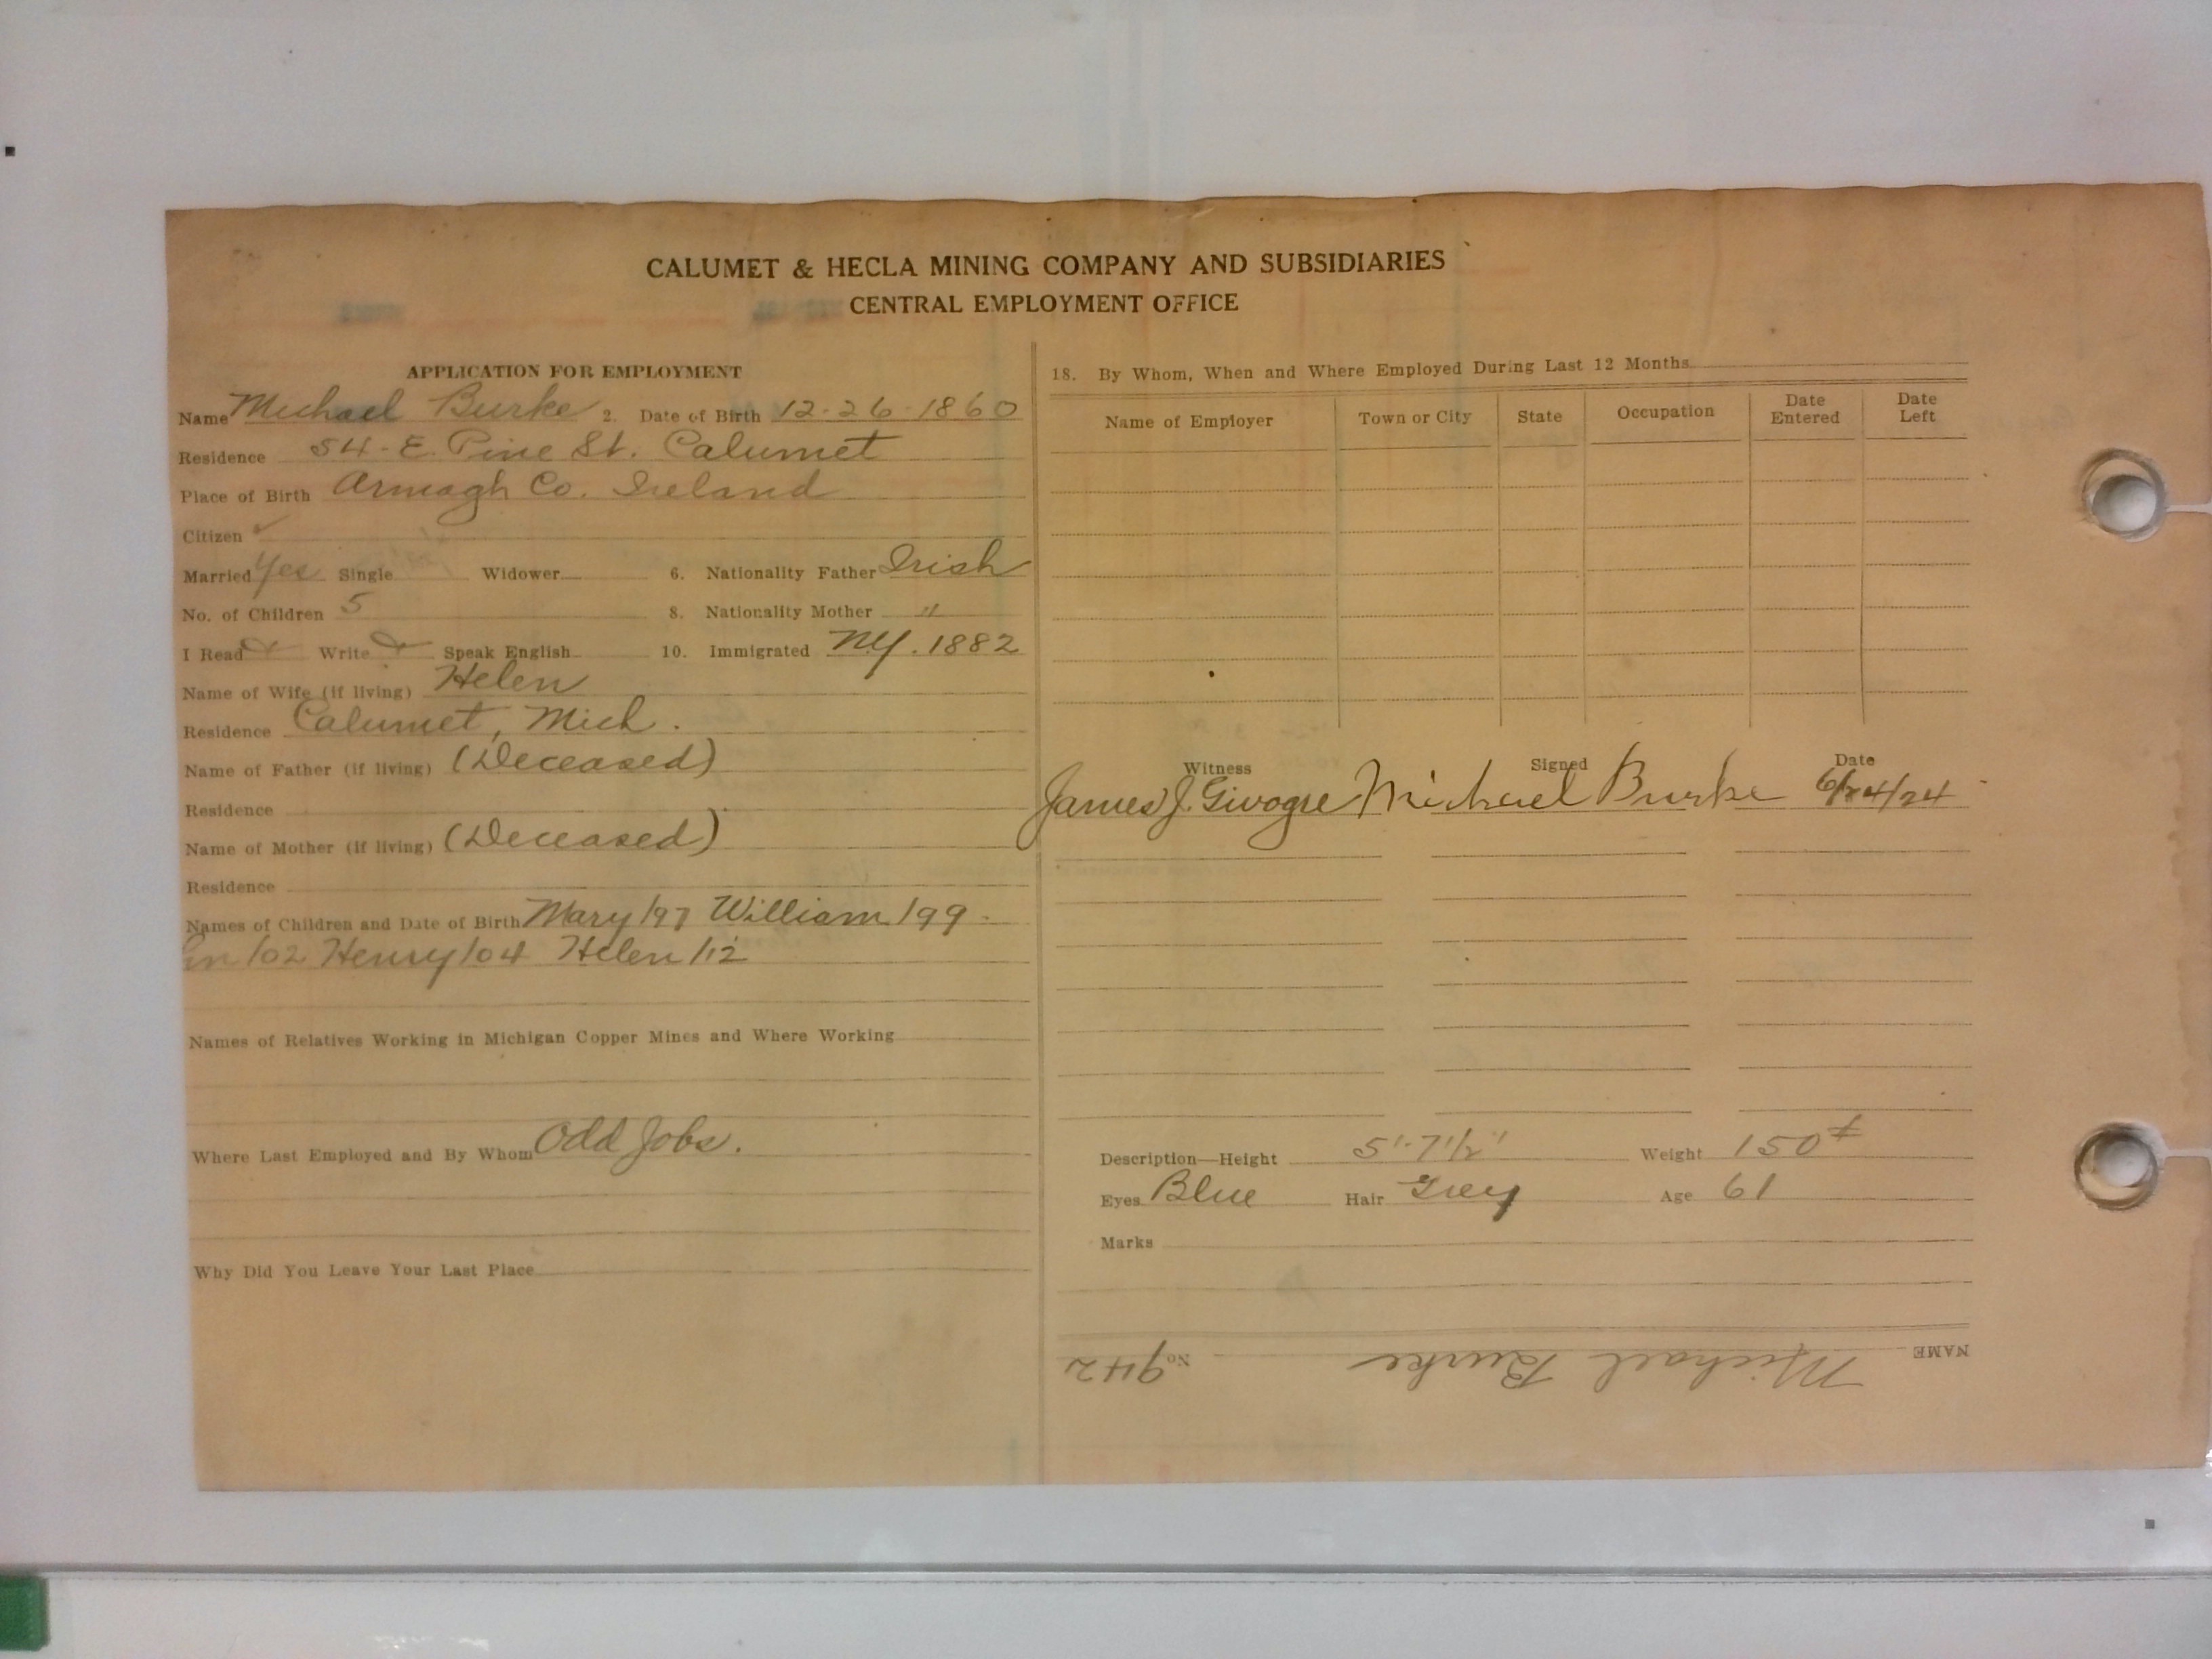 CALUMET & HECLA MINING COMPANY AND SUBSIDIARIES
CENTRAL EMPLOYMENT OFFICE
APPLICATION FOR EMPLOYMENT
Name Michael Burke 2. Date of Birth 12-26-1860
Residence 54-E. Pine St. Calumet
Place of Birth Armagh Co. Ireland
Citizen ✓
Married Yes Single Widower 6. Nationality Father Irish
No. of Children 5 8. Nationality Mother "
I Read Write Speak English 10. Immigrated N.Y. 1882
Name of Wife (if living) Helen
Residence Calumet, Mich.
Name of Father (if living) (Deceased)
Residence
Name of Mother (if living) (Deceased)
Residence
Names of Children and Date of Birth Mary/97 William/99
/02 Henry/04 Helen/12
Names of Relatives Working in Michigan Copper Mines and Where Working
Where Last Employed and By Whom Odd Jobs.
Why Did You Leave Your Last Place
18. By Whom, When and Where Employed During Last 12 Months
Name of Employer Town or City State Occupation Date Entered Date Left
Witness Signed Date
James J. Michael Burke 6/24/24
Description—Height 5'-7 1/2" Weight 150#
Eyes Blue Hair Grey Age 61
Marks
NAME Michael Burke No. 942